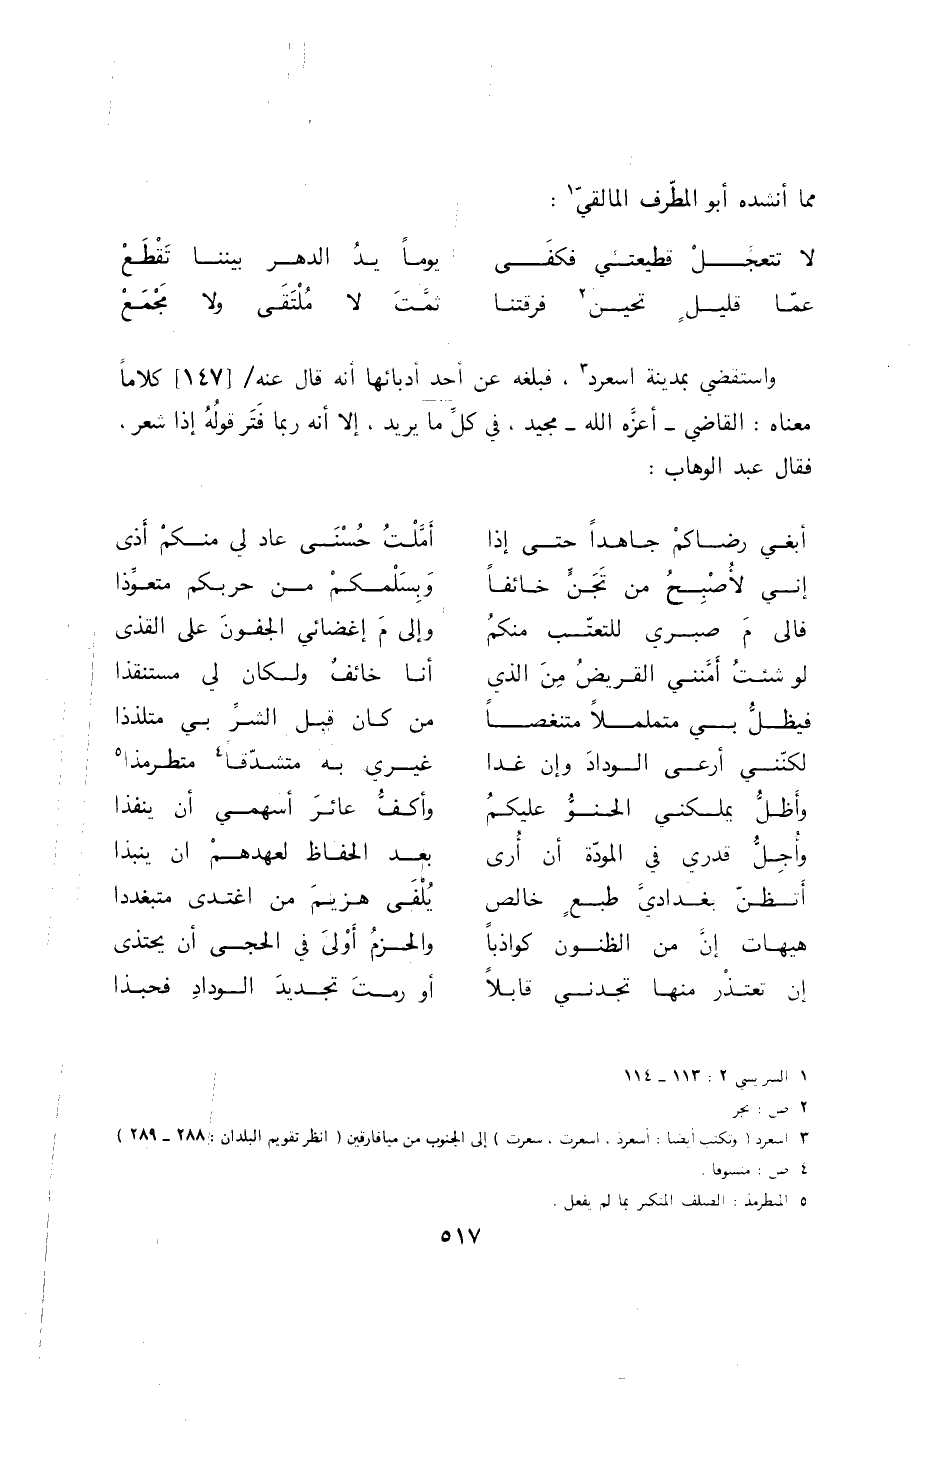 مما أنشده أبو المطّرف المالقيّ١ :
لا تتعجَّلْ قطيعتي فكفَى يوماً يدُ الدهر بيننا تَقْطَعْ
عمّا قليلٍ تحين٢ فرقتنا ثمَّتَ لا مُلْتَقَى ولا مَجْمَعْ
واستقضي بمدينة اسعرد٣ ، فبلغه عن أحد أدبائها أنه قال عنه/ [١٤٧] كلاماً
معناه : القاضي ـ أعزَّه الله ـ مجيد ، في كلِّ ما يريد ، إلا أنه ربما فَتَر قولُهُ إذا شعر ،
فقال عبد الوهاب :
أبغي رضاكمْ جاهداً حتى إذا أمَّلْتُ حُسْنَى عاد لي منكمْ أذى
إني لأُصْبِحُ من تَجَنٍّ خائفاً وَبِسَلْمكمْ من حربكم متعوِّذا
فالى مَ صبري للتعتّب منكمُ وإلى مَ إغضائي الجفونَ على القذى
لو شئتُ أمَّنني القريضُ مِنَ الذي أنا خائفُ ولكان لي مستنقذا
فيظلُّ بي متململاً متنغصاً من كان قبل الشرِّ بي متلذذا
لكنّني أرعى الودادَ وإن غدا غيري به متشدّقا٤ متطرمذا٥
وأظلُّ يملكني الحنوُّ عليكمُ وأكفُّ عائرَ أسهمي أن ينفذا
وأُجِلُّ قدري في المودّة أن أُرى بعد الحفاظ لعهدهمْ ان ينبذا
أتظنّ بغداديَّ طبعٍ خالص يُلْفَى هزيمَ من اغتدى متبغددا
هيهات إنَّ من الظنون كواذباً والحزمُ أوْلىَ في الحجى أن يحتذى
إن تعتذْر منها تجدني قابلاً أو رمتَ تجديدَ الودادِ فحبذا
١ الشريشي ٢ : ١١٣ ـ ١١٤
٢ ص : بحر
٣ اسعرد ( وتكتب أيضا : أسعرذ ، اسعرت ، سعرت ) إلى الجنوب من ميافارقين ( انظر تقويم البلدان : ٢٨٨ ـ ٢٨٩ )
٤ ص : متسوقا .
٥ المطرمذ : الصلف المتكبر بما لم يفعل .
٥١٧